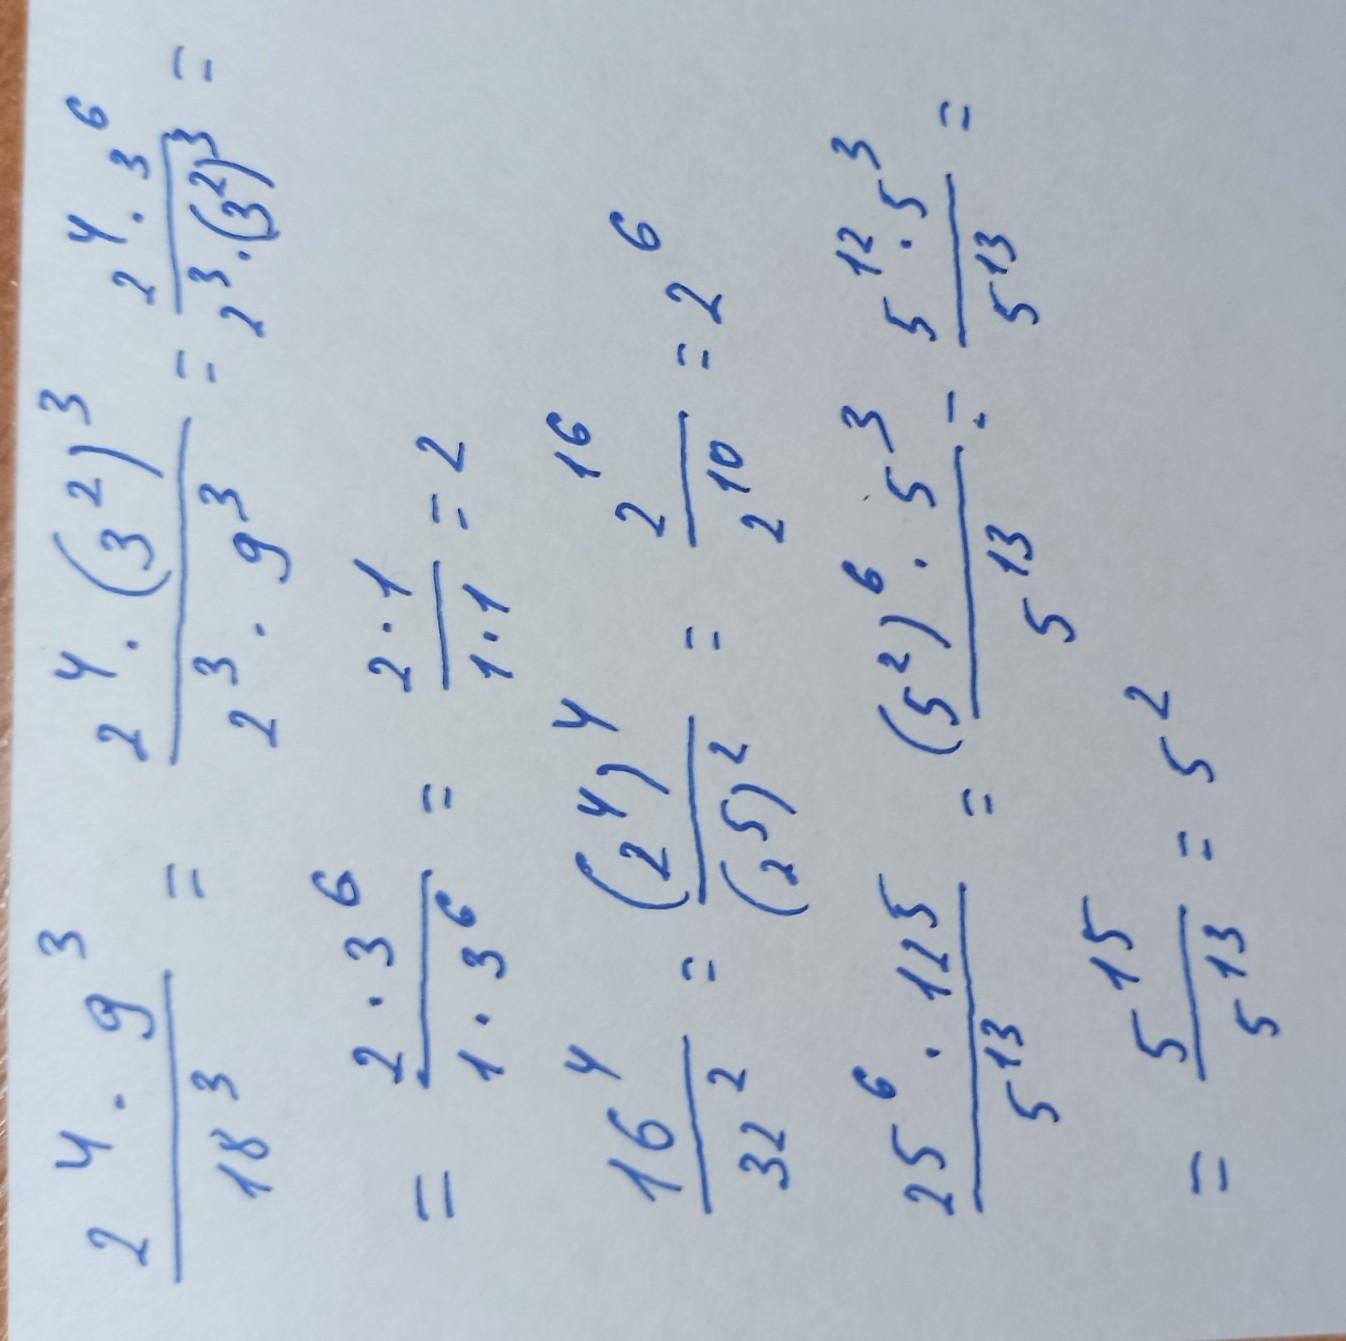 2⁴·9³/18³ = 2⁴·(3²)³/2³·9³ = 2⁴·3⁶/2³·(3²)³ =
= 2·3⁶/1·3⁶ = 2·1/1·1 = 2
16⁴/32² = (2⁴)⁴/(2⁵)² = 2¹⁶/2¹⁰ = 2⁶
25⁶·125/5¹³ = (5²)⁶·5³/5¹³ = 5¹²·5³/5¹³ =
= 5¹⁵/5¹³ = 5²